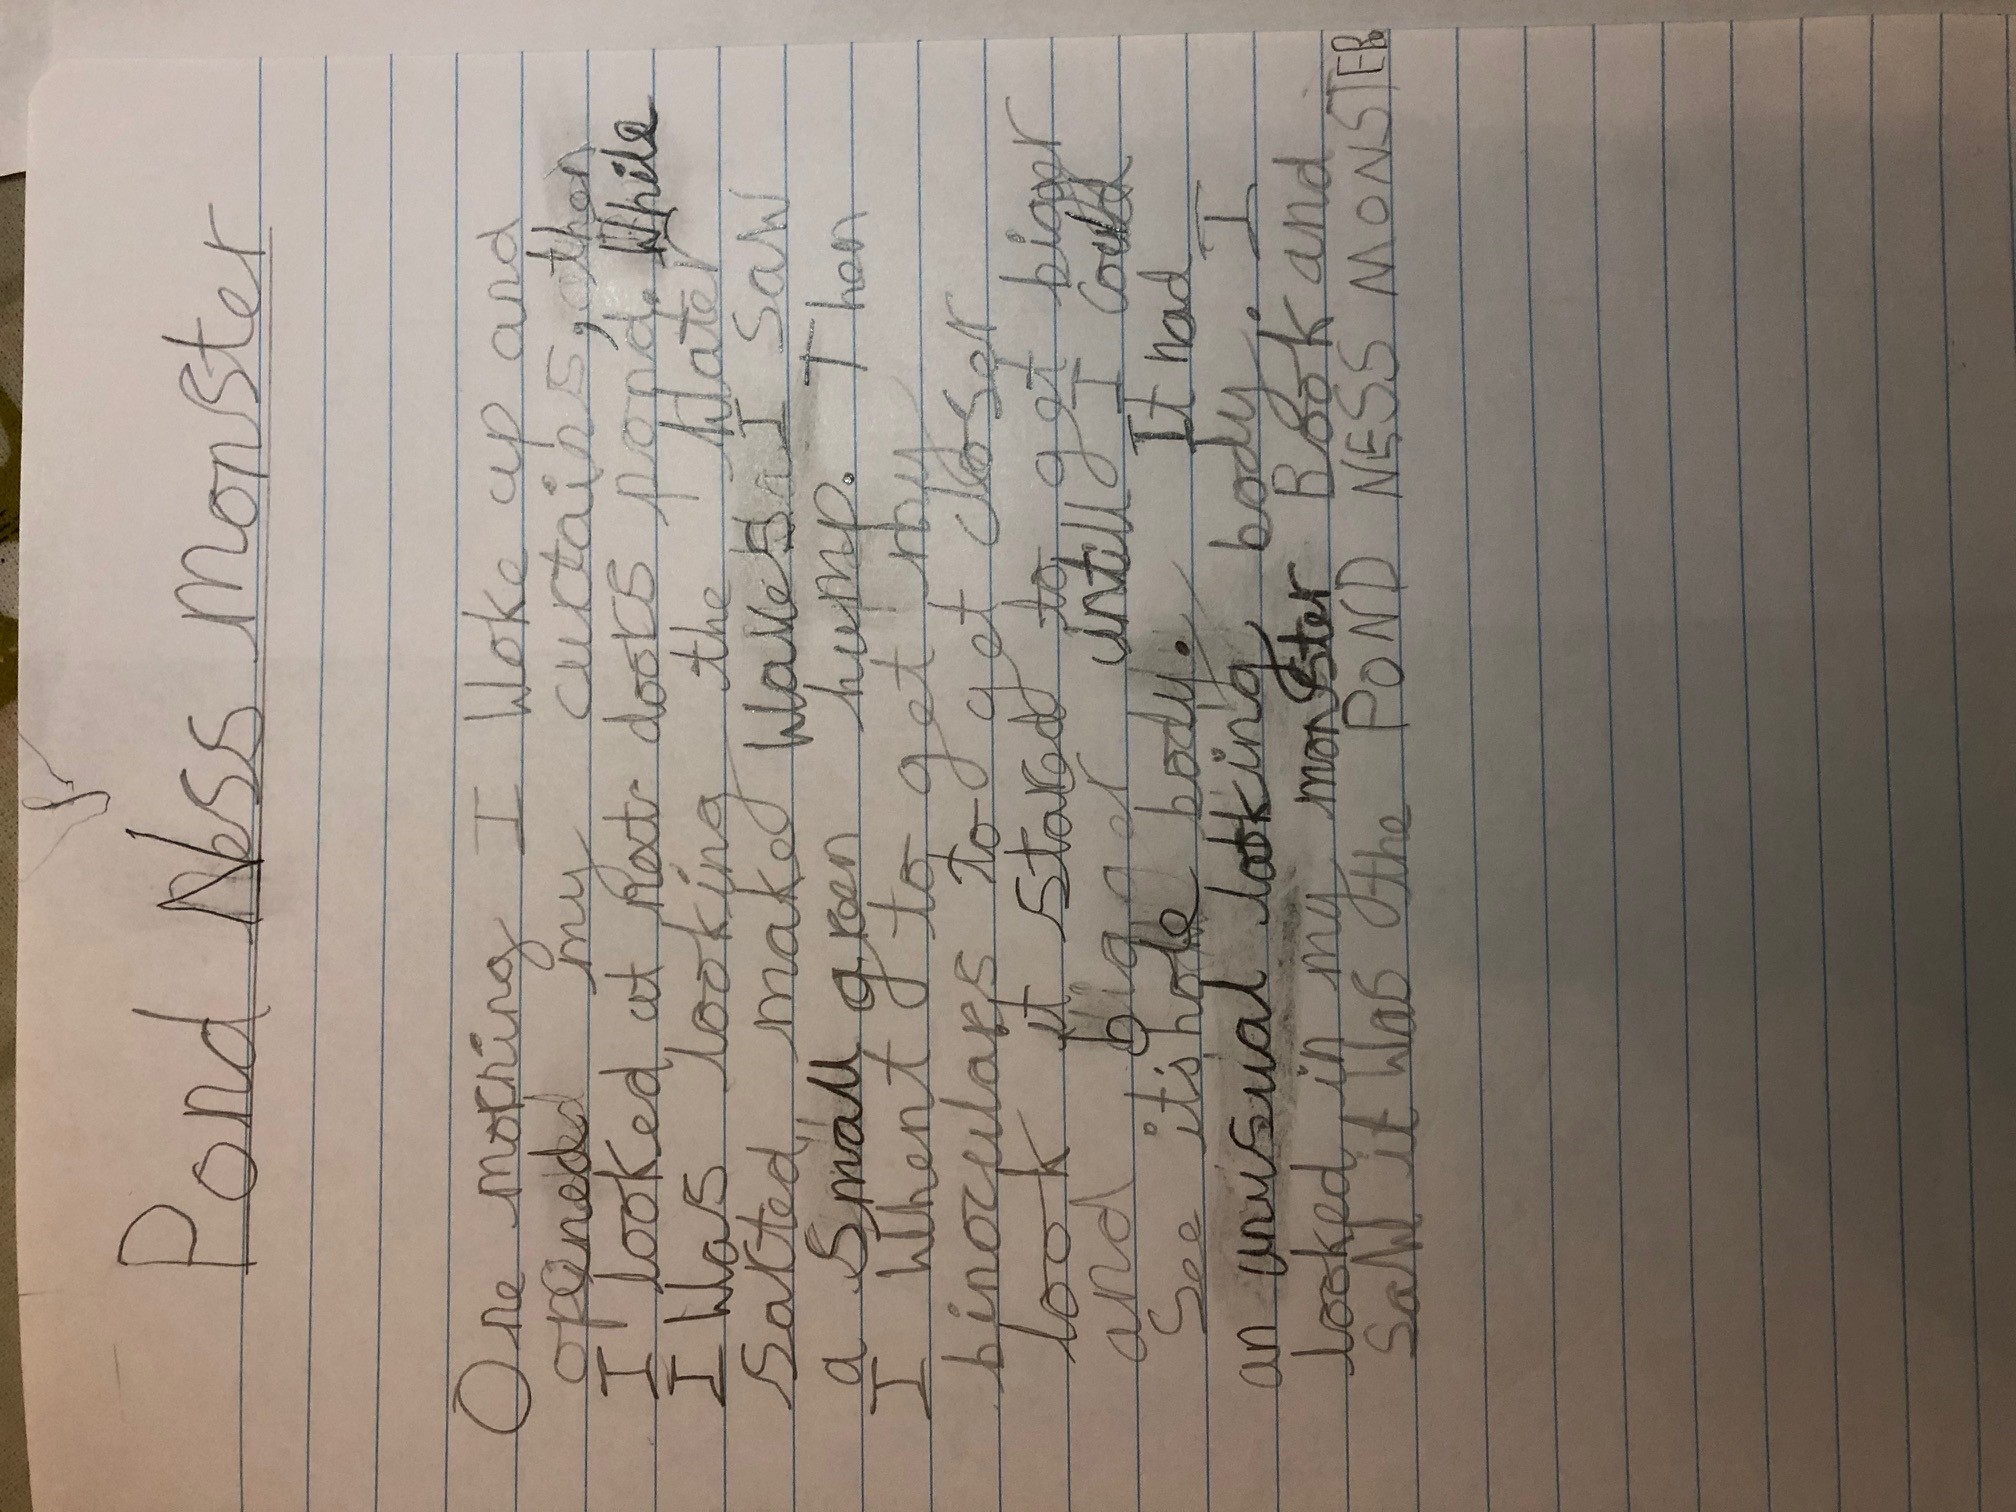 Pond Ness monster
One morning I Woke up and
opened my curtains, then
I looked at Next doors pond. While
I Was looking the Water
Sarted make Waves I Saw
a Small green hump. Then
I Whent to get my
binoculars To get closer
look it Stared to get bigger
and bigger untill I Could
See it's hole body. It had
an unusual looking body. I
looked in my monster Book and
SaW it Was the POND NESS MONSTER.